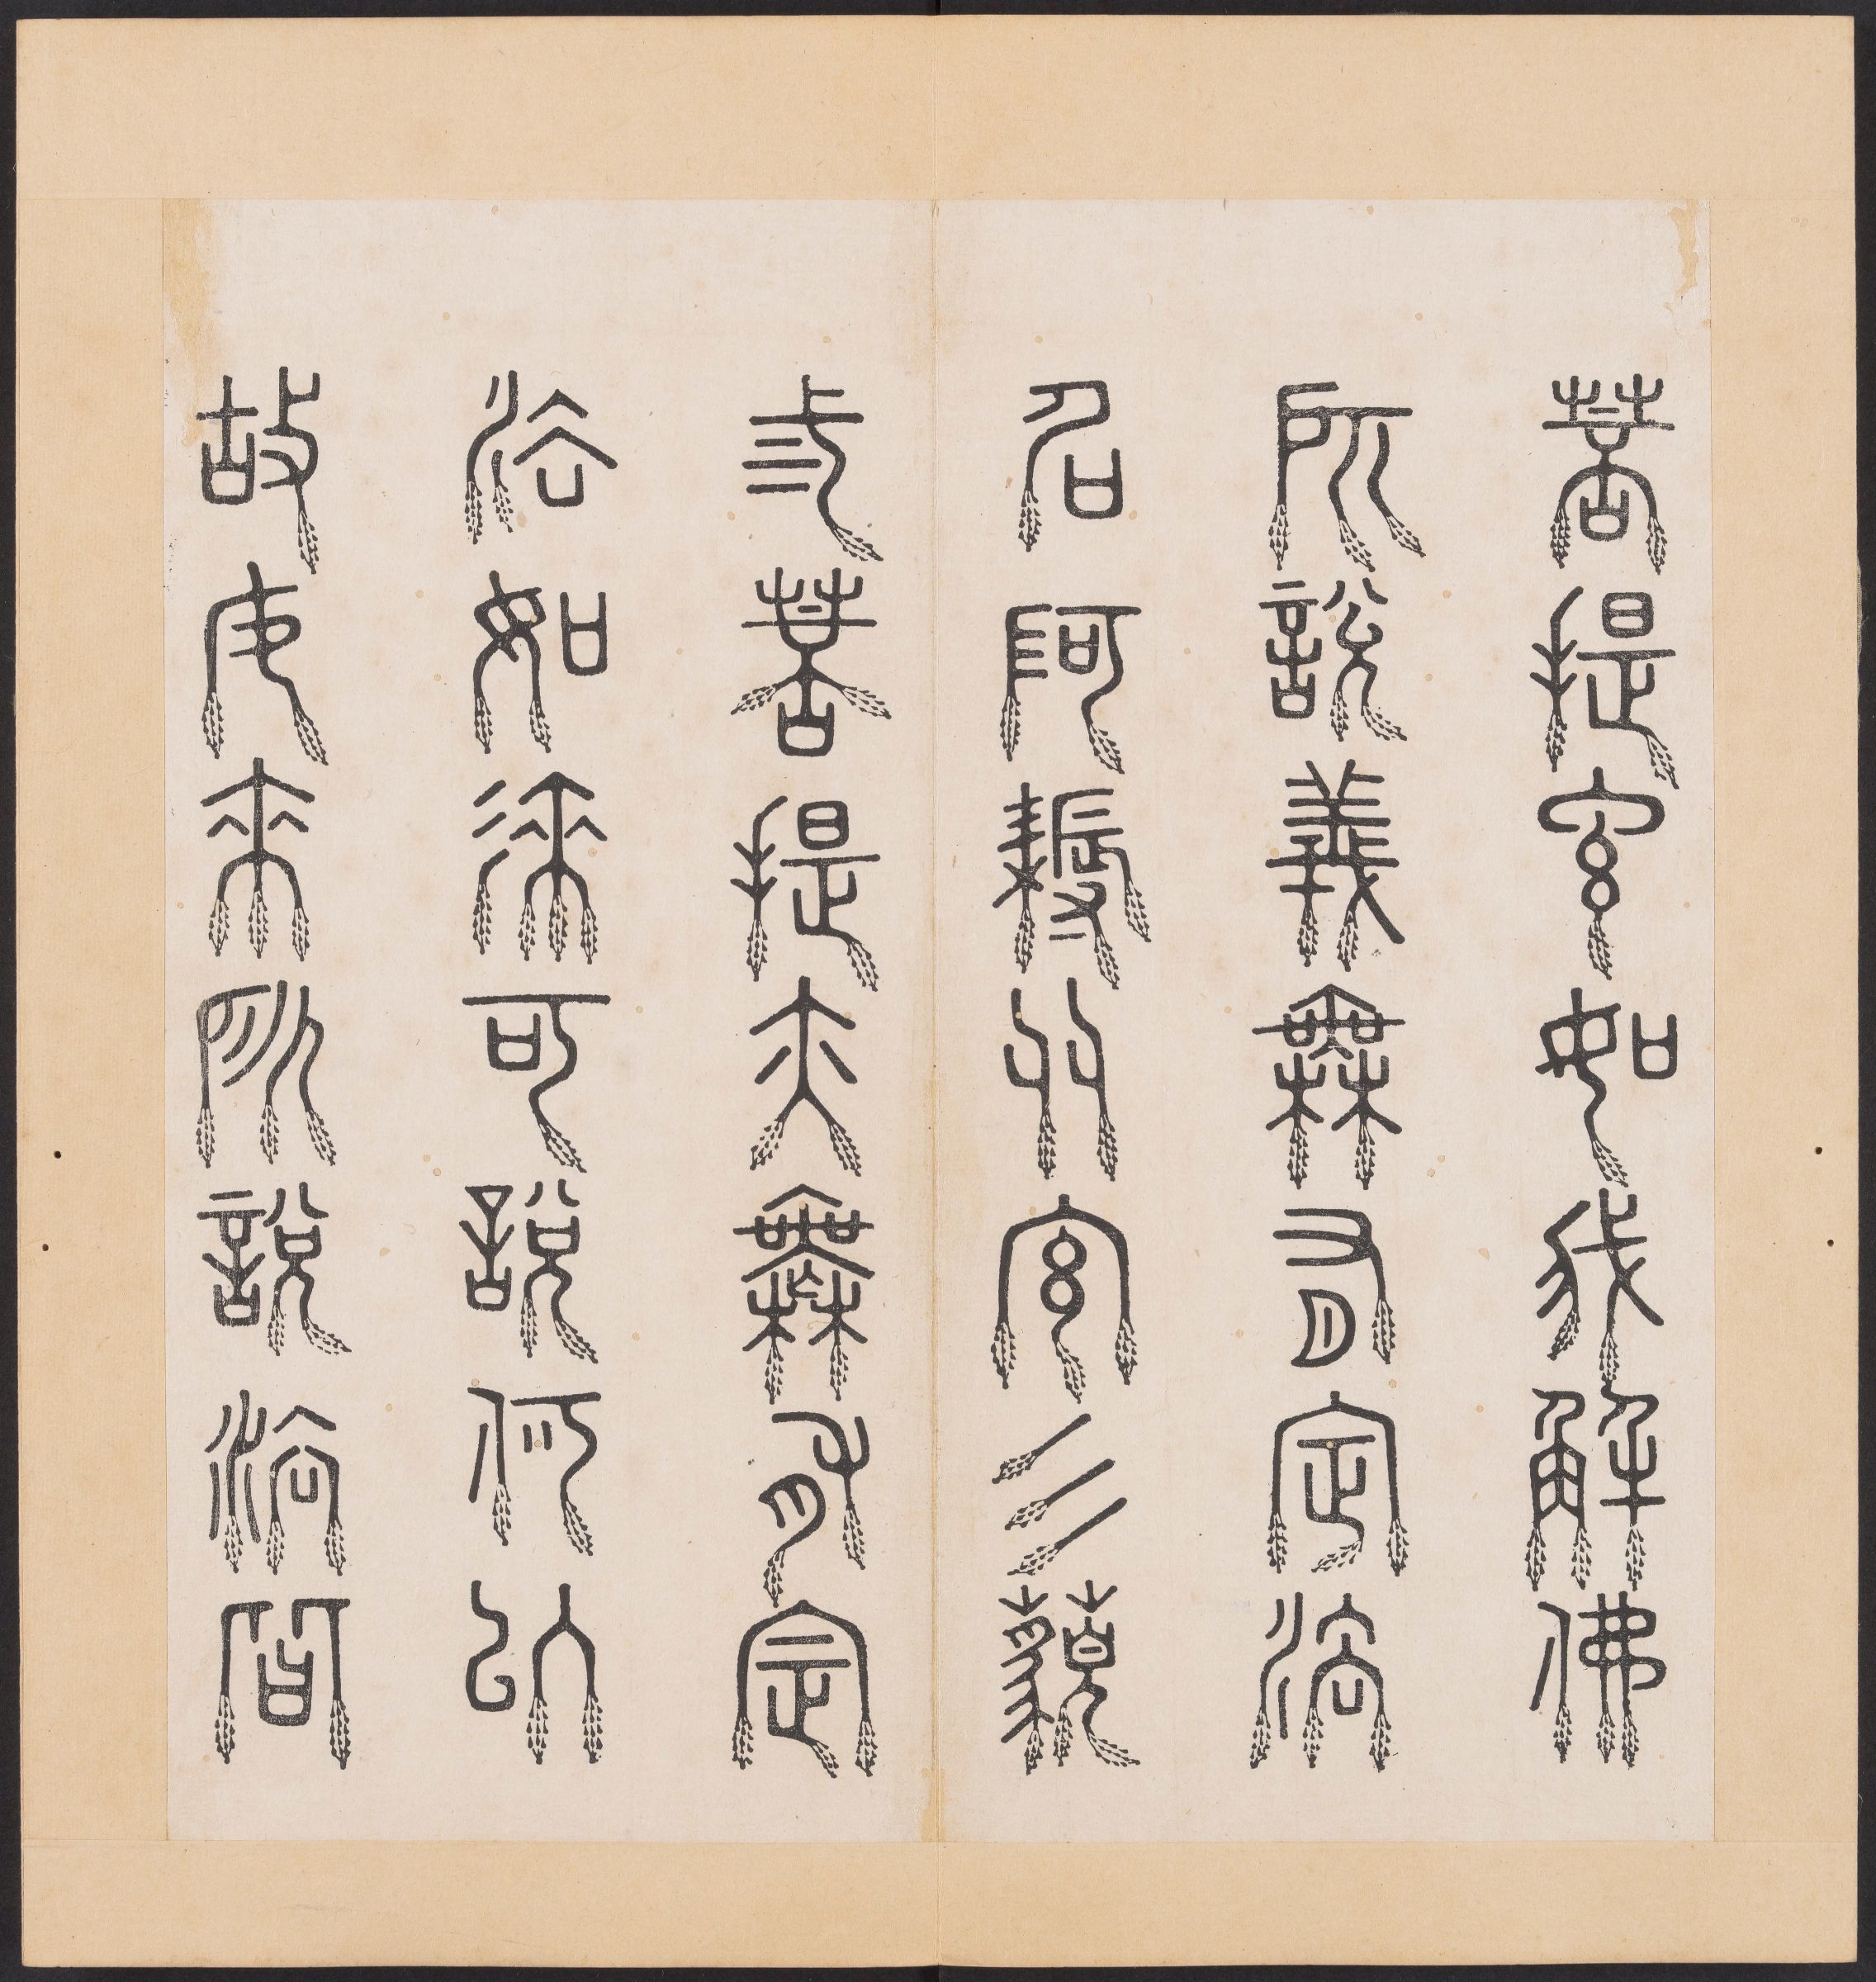 菩提言如我解佛
所說義無有定法
名阿耨多羅三藐
三菩提亦無有定
法如來可說何以
故如來所說法皆